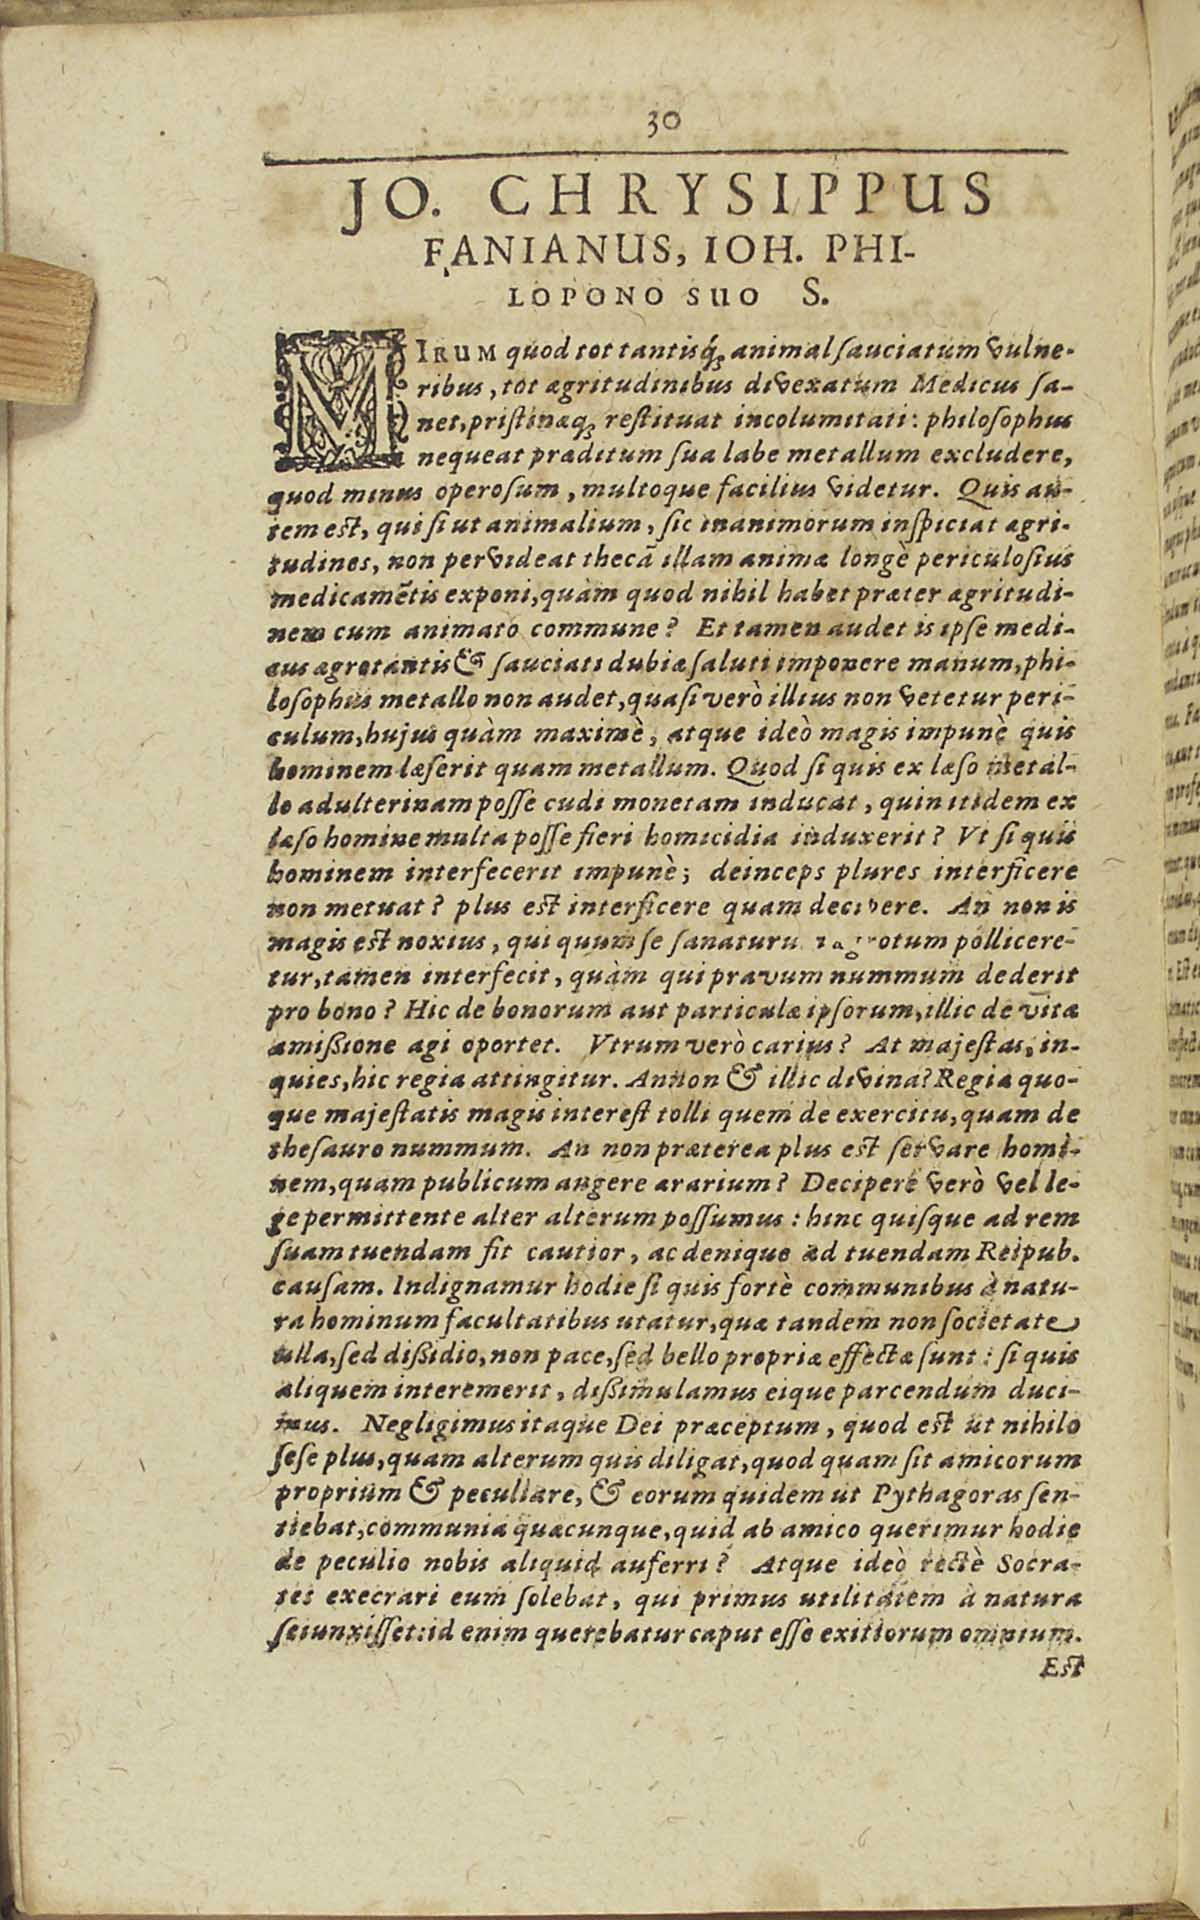 30
JO. CHRYSIPPUS
FANIANUS, IOH. PHI-
LOPONO SUO S.
MIRUM quod tot tantisq́ꝫ animal ſauciatum vulne-
ribus, tot ægritudinibus divexatum Medicus ſa-
net, priſtinæq́ꝫ reſtituat incolumitati: philoſophus
nequeat præditum ſua labe metallum excludere,
quod minus operoſum, multoque facilius videtur. Quis au-
tem eſt, qui ſi ut animalium, ſic inanimorum inſpiciat ægri-
tudines, non pervideat thecã illam animæ longè periculoſius
medicamẽtis exponi, quàm quod nihil habet præter ægritudi-
nem cum animato commune? Et tamen audet is ipſe medi-
cus ægrotantis & ſauciati dubiæ ſaluti imponere manum, phi-
loſophus metallo non audet, quaſi verò illius non vetetur peri-
culum, hujus quàm maximè, atque ideò magis impunè quis
hominem læſerit quam metallum. Quod ſi quis ex læſo metal-
lo adulterinam poſſe cudi monetam inducat, quin itidem ex
læſo homine multa poſſe fieri homicidia induxerit? Vt ſi quis
hominem interfecerit impunè; deinceps plures interficere
non metuat? plus eſt interficere quam decipere. An non is
magis eſt noxius, qui quum ſe ſanaturu ægrotum pollicere-
tur, tamen interfecit, quàm qui pravum nummum dederit
pro bono? Hic de bonorum aut particulæ ipſorum, illic de vitæ
amiſſione agi oportet. Vtrum verò carius? At majeſtas, in-
quies, hic regia attingitur. Annon & illic divina? Regia quo-
que majeſtatis magis intereſt tolli quem de exercitu, quam de
theſauro nummum. An non præterea plus eſt ſervare homi-
nem, quam publicum augere ærarium? Decipere verò vel le-
ge permittente alter alterum poſſumus: hinc quiſque ad rem
ſuam tuendam fit cautior, ac denique ad tuendam Reipub.
cauſam. Indignamur hodie ſi quis fortè communibus à natu-
ra hominum facultatibus utatur, quæ tandem non ſocietate
ulla, ſed diſſidio, non pace, ſed bello propriæ effectæ ſunt: ſi quis
aliquem interemerit, diſſimulamus eique parcendum duci-
mus. Negligimus itaque Dei præceptum, quod eſt ut nihilo
ſeſe plus, quam alterum quis diligat, quod quam ſit amicorum
proprium & peculiare, & eorum quidem ut Pythagoras ſen-
tiebat, communia quæcunque, quid ab amico querimur hodie
de peculio nobis aliquid auferri? Atque ideò rectè Socra-
tes execrari eum ſolebat, qui primus utilitatem à natura
ſeiunxiſſet: id enim querebatur caput eſſe exitiorum omnium.
Eſt